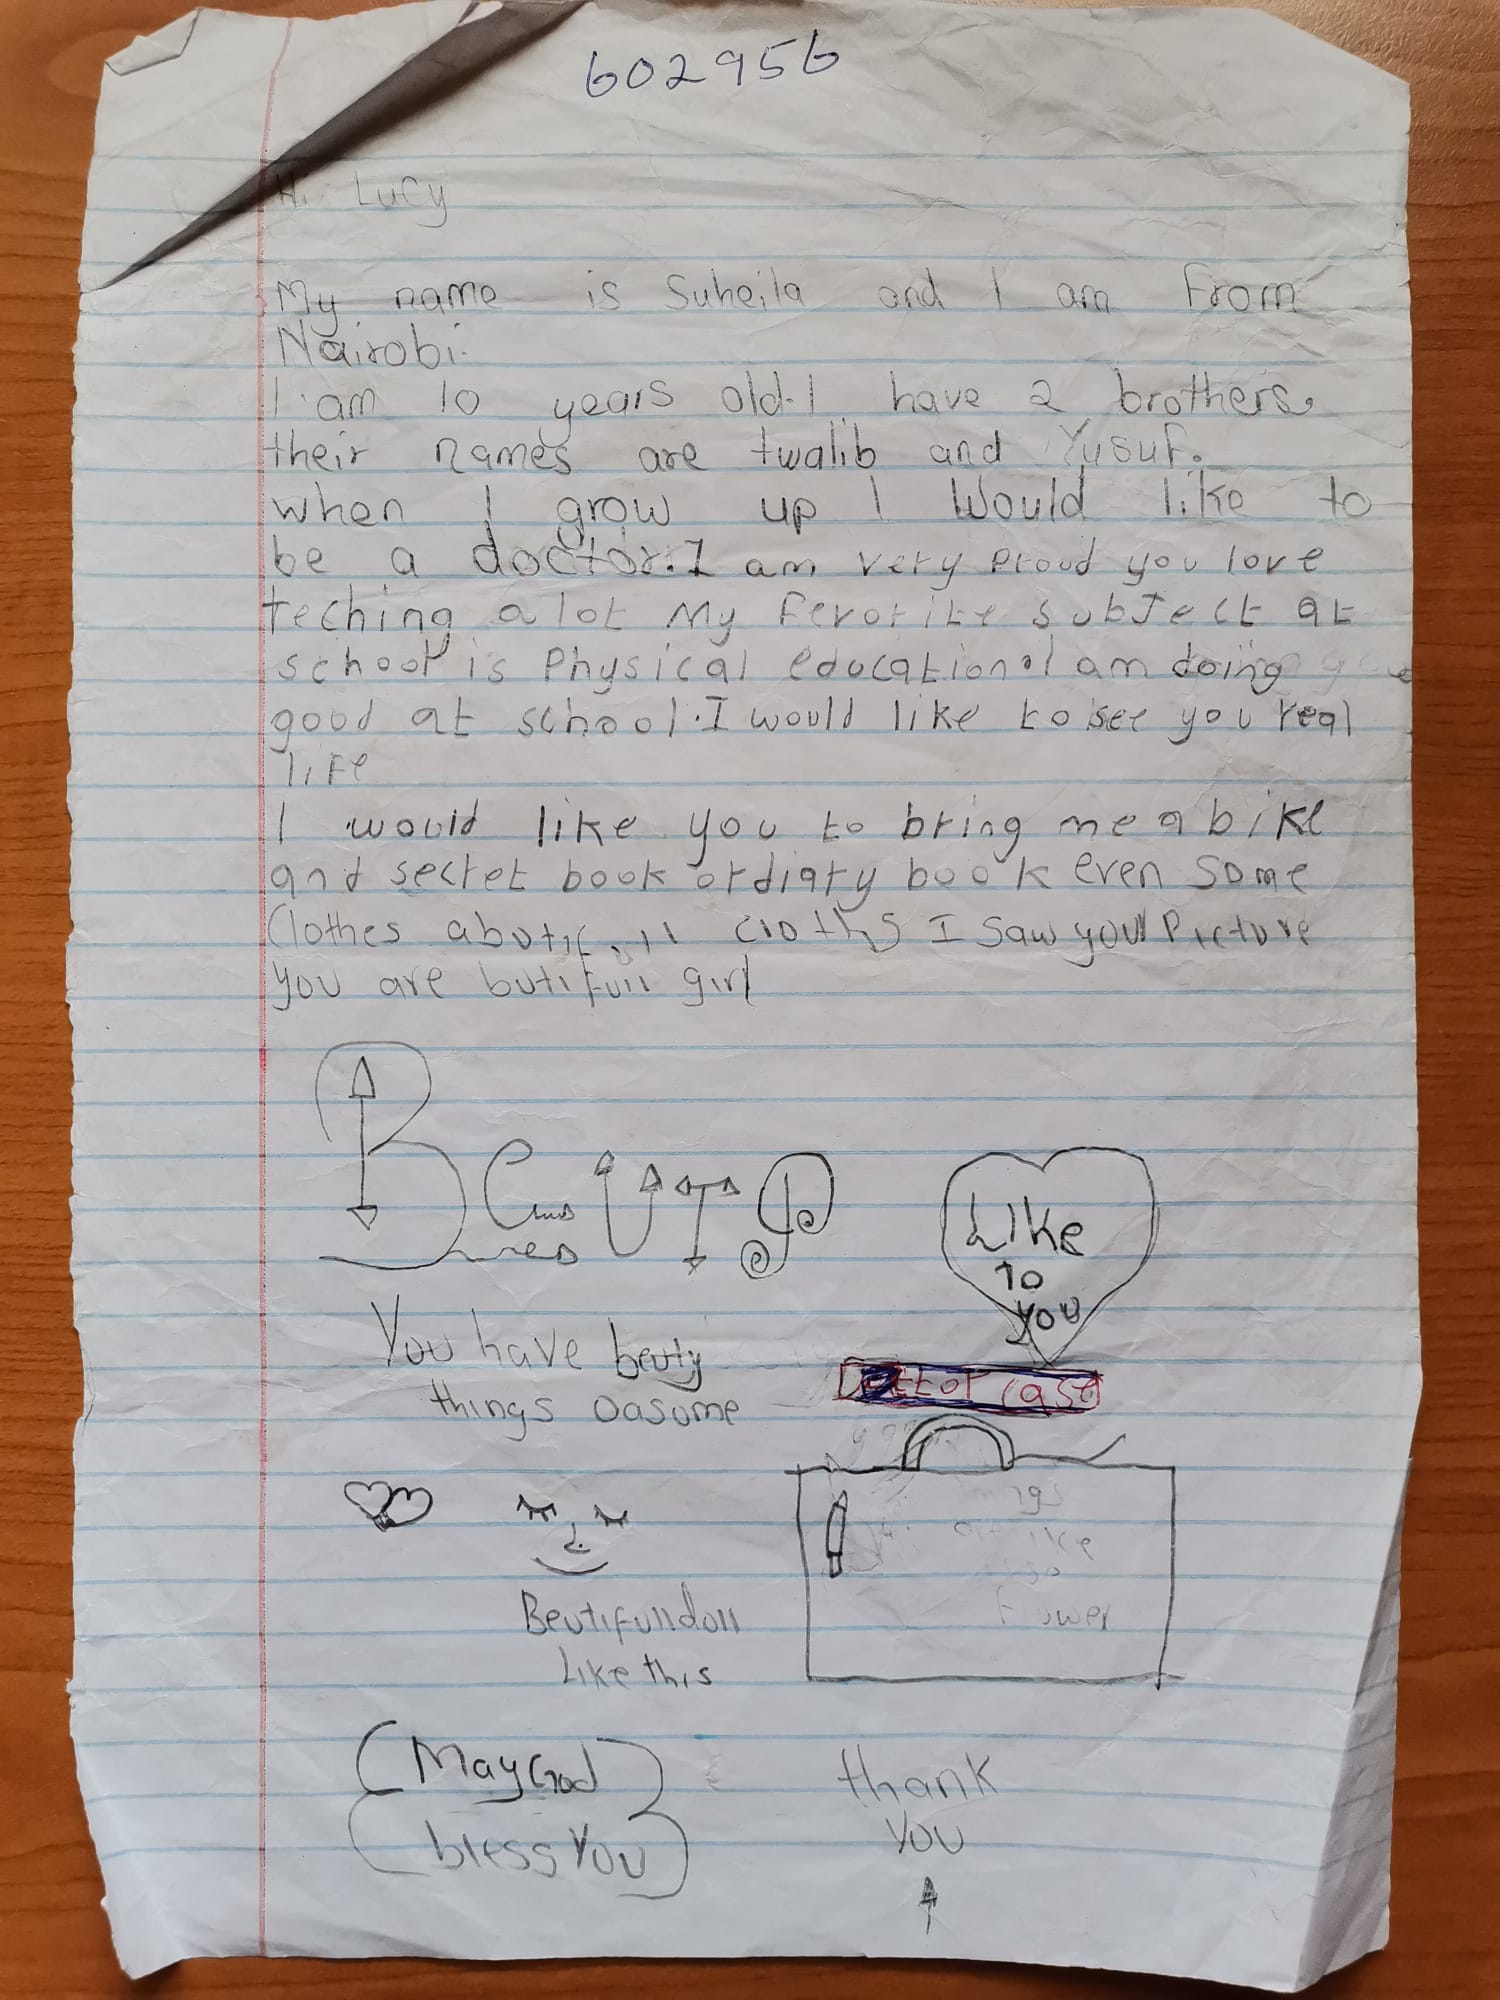 602956
Hi Lucy
My name is Suheila and I am From
Nairobi.
I am 10 years old. I have 2 brothers
their names are twalib and Yusuf.
when I grow up I Would like to
be a doctor. I am very Proud you love
teching a lot My Fevorite subJect at
school is Physical education I am doing
good at school. I would like to see you real
liFe
I would like you to bring me a bike
and secret book or diary book even some
Clothes cloths I saw your Picture
you are butifull girl
You have beuty
things oasume
Like
to
you
case
Beutifulldoll
Like this
Flower
May God
bless You
thank
you